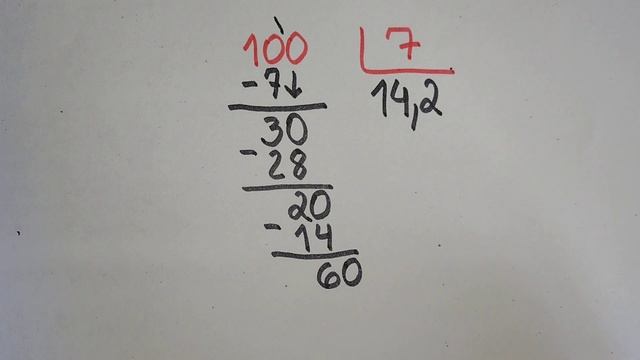 100 7
-7↓ 14,2
30
-28
20
-14
60